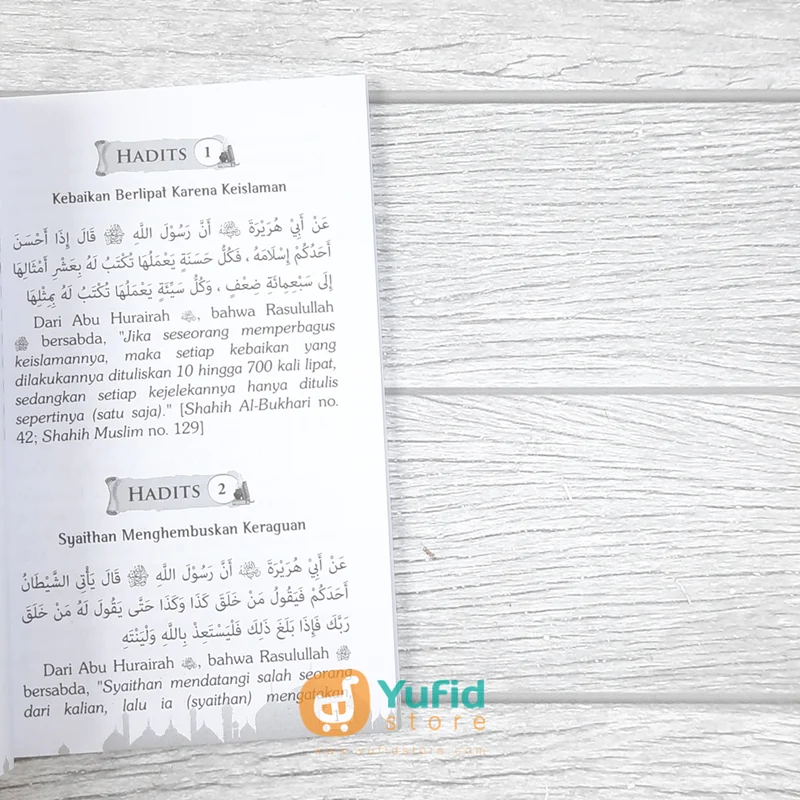 HADITS 1
Kebaikan Berlipat Karena Keislaman
عَنْ أَبِيْ هُرَيْرَةَ ؓ أَنَّ رَسُوْلَ اللَّهِ ﷺ قَالَ إِذَا أَحْسَنَ
أَحَدُكُمْ إِسْلَامَهُ ، فَكُلُّ حَسَنَةٍ يَعْمَلُهَا تُكْتَبُ لَهُ بِعَشْرِ أَمْثَالِهَا
إِلَى سَبْعِمِائَةِ ضِعْفٍ ، وَكُلُّ سَيِّئَةٍ يَعْمَلُهَا تُكْتَبُ لَهُ بِمِثْلِهَا
Dari Abu Hurairah ؓ, bahwa Rasulullah
ﷺ bersabda, "Jika seseorang memperbagus
keislamannya, maka setiap kebaikan yang
dilakukannya dituliskan 10 hingga 700 kali lipat,
sedangkan setiap kejelekannya hanya ditulis
sepertinya (satu saja)." [Shahih Al-Bukhari no.
42; Shahih Muslim no. 129]
HADITS 2
Syaithan Menghembuskan Keraguan
عَنْ أَبِيْ هُرَيْرَةَ ؓ أَنَّ رَسُوْلَ اللَّهِ ﷺ قَالَ يَأْتِي الشَّيْطَانُ
أَحَدَكُمْ فَيَقُولُ مَنْ خَلَقَ كَذَا وَكَذَا حَتَّى يَقُولَ لَهُ مَنْ خَلَقَ
رَبَّكَ فَإِذَا بَلَغَ ذَلِكَ فَلْيَسْتَعِذْ بِاللَّهِ وَلْيَنْتَهِ
Dari Abu Hurairah ؓ, bahwa Rasulullah ﷺ
bersabda, "Syaithan mendatangi salah seorang
dari kalian, lalu ia (syaithan) mengatakan,
Yufid
store
www.yufidstore.com